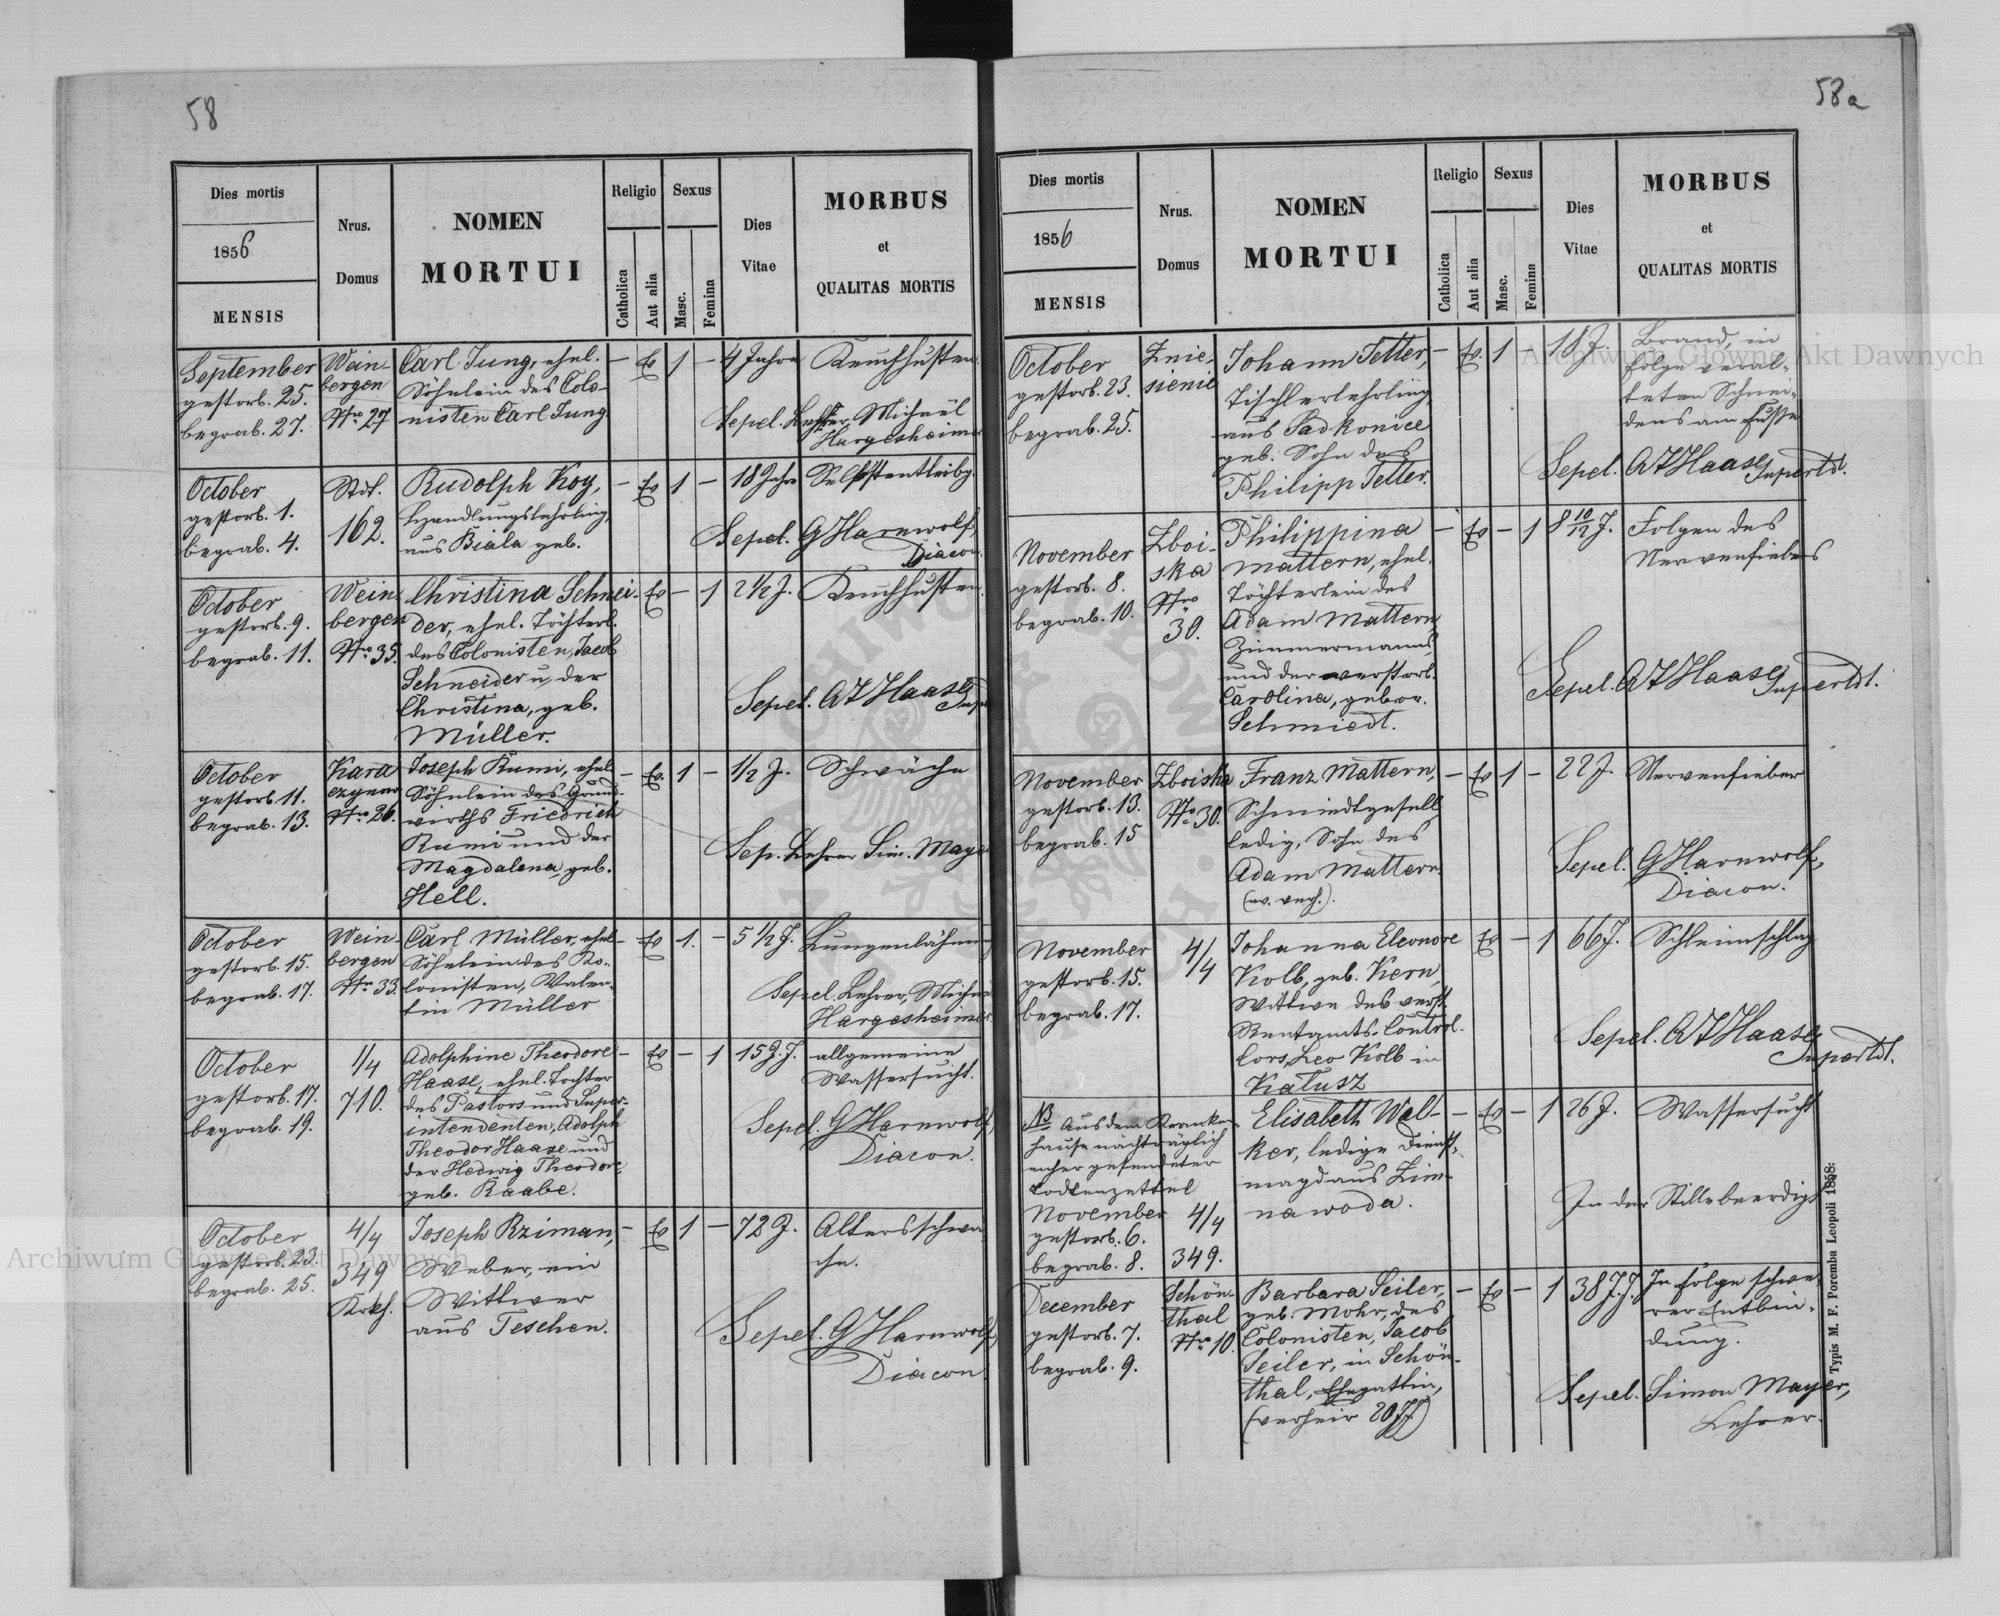 58
Dies mortis
1856
MENSIS
Nrus.
Domus
NOMEN
MORTUI
Religio
Catholica
Aut alia
Sexus
Masc.
Femina
Dies
Vitae
MORBUS
et
QUALITAS MORTIS
September
gestorb. 25.
begrab. 27.
Wein-
bergen
Nro 27
Carl Jung, ehel.
Söhnlein des Colo-
nisten Carl Jung
– Ev 1 –
4 Jahre
Keuchhusten
Sepel. Lehrer, Michael
Hargesheimer
October
gestorb. 1.
begrab. 4.
Stdt.
162.
Rudolph Koy,
Handlungslehrling,
aus Biala geb.
– Ev 1 –
18 Jahre
Selbstentleibg
Sepel. G Harnwolf,
Diacon.
October
gestorb. 9.
begrab. 11.
Wein-
bergen
Nro 35.
Christina Schnei-
der, ehel. Töchterl.
des Colonisten, Jacob
Schneider u, der
Christina, geb.
Müller.
Ev – 1
2 1/2 J.
Keuchhusten.
Sepel. A T Haase
Supt
October
gestorb. 11.
begrab. 13.
Kara
czynow
Nro 26.
Joseph Rumi, ehel
Söhnlein des Grund-
wirths Friedrich
Rumi und der
Magdalena, geb.
Hell.
– Ev. 1 –
1/2 J.
Schwäche
Sep. Lehrer Sim. Maye
October
gestorb. 15.
begrab. 17.
Wein-
bergen
Nro 33.
Carl Müller, ehel
Söhnlein des Ko-
lonisten, Walen-
tin Müller
– Ev 1. –
5 1/2 J.
Lungenlähmung
Sepel. Lehrer, Michael
Hargesheimer
October
gestorb. 17.
begrab. 19.
1/4
710.
Adolphine Theodore
Haase, ehel. Tochter
des Pastors und Super-
intendenten, Adolph
Theodor Haase und
der Hedwig Theodore
geb. Raabe.
– Ev – 1
15 J. J.
allgemeine
Wassersucht.
Sepel. G Harnwolf,
Diacon.
October
gestorb. 23.
begrab. 25.
4/4
349
Krkh.
Joseph Rziman,
Weber, ein
Wittwer
aus Teschen.
– Ev 1 –
72 J.
Altersschwä-
che.
Sepel. G Harnwolf,
Diacon.
58a
Dies mortis
1856
MENSIS
Nrus.
Domus
NOMEN
MORTUI
Religio
Catholica
Aut alia
Sexus
Masc.
Femina
Dies
Vitae
MORBUS
et
QUALITAS MORTIS
October
gestorb. 23.
begrab. 25.
Znie-
sienie
Johann Tetter,
Tischlerlehrling,
aus Sadkonice
geb. Sohn des
Philipp Tetter.
– Ev. 1
18 J.
Brand, in
Folge veral-
teten Schnei-
dens am Fusse
Sepel. A T Haase
Superdt.
November
gestorb. 8.
begrab. 10.
Zboi-
ska
Nro
30.
Philippina
Mattern, ehel.
Töchterlein des
Adam Mattern
Zimmermanns,
und der verstorb.
Carolina, gebor.
Schmiedt.
– Ev – 1
8 10/12 J.
Folgen des
Nervenfiebers
Sepel. A T Haase
Superdt.
November
gestorb. 13.
begrab. 15
Zboiska
Nro 30.
Franz Mattern,
Schmiedtgesell
ledig, Sohn des
Adam Mattern.
– Ev 1 –
22 J.
Nervenfieber
Sepel. G Harnwolf,
Diacon.
November
gestorb. 15.
begrab. 17.
4/4
Johanna Eleonore
Kolb, geb. Kern,
Wittwe des verst.
Rentamts-Control-
lors, Leo Kolb in
Kałusz
Ev – 1
66 J.
Schleimschlag
Sepel. A T Haase
Superdt.
NB Aus dem Kranken-
hause nachträglich
anher gesendeter
Todtenzettel
November
gestorb. 6.
begrab. 8.
4/4
349.
Elisabeth Wal-
ker, ledige Dienst-
magd aus Zim-
nawoda.
– Ev – 1
26 J.
Wassersucht
In der Stille beerdigt
December
gestorb. 7.
begrab. 9.
Schön-
thal
Nro 10.
Barbara Seiler,
geb. Mohr, des
Colonisten, Jacob
Seiler, in Schön-
thal, Ehegattin,
(verheir 20 JJ)
– Ev – 1
38 J. J.
In Folge schwe-
rer Entbin-
dung.
Sepel. Simon Mayer,
Lehrer.
Typis M. F. Poremba Leopoli 1858.
Archiwum Główne Akt Dawnych
Archiwum Główne Akt Dawnych